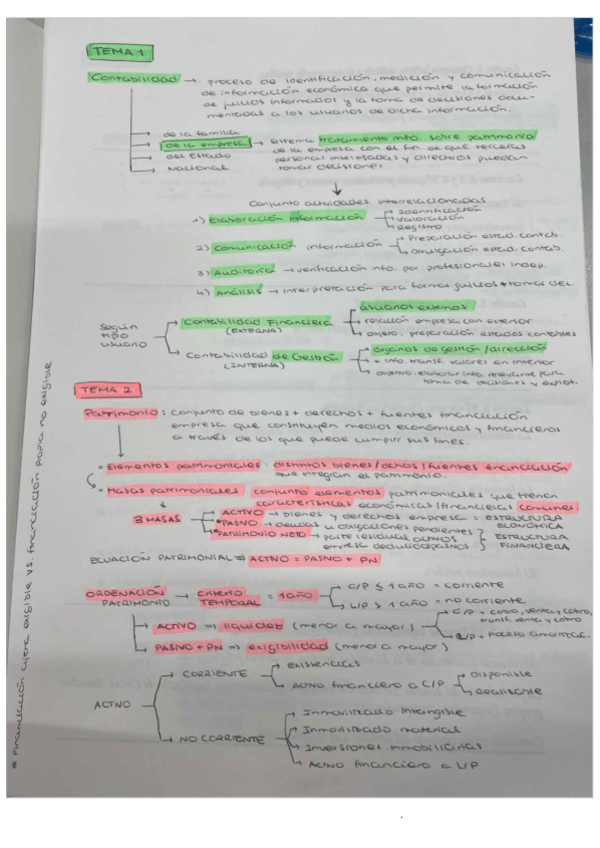 TEMA 1
Contabilidad → proceso de identificación, medición y comunicación
de información económica que permite la formación
de juicios informados y la toma de decisiones docu-
mentadas a los usuarios de dicha información.
→ de la familia
→ de la empresa → sistema tratamiento info. sobre patrimonio
de la empresa con el fin de que terceras
personal interesadas y directivos puedan
tomar decisiones
→ del estado
→ Nacional
Conjunto actividades interrelacionadas
1) Elaboración información → Identificación
→ valoración
→ registro
2) Comunicación información → Preparación estad. contab.
→ Divulgación estad. contab.
3) Auditoría → verificación info. por profesionales indep.
4) Análisis → interpretación para formar juicios + tomar dec.
según
tipo
usuario
→ Contabilidad Financiera
(EXTERNA)
→ usuarios externos
→ relación empresa con exterior
→ objeto: preparación estados contables
→ Contabilidad de Gestión
(INTERNA)
→ órganos de gestión/dirección
→ + info. transf. valores en interior
→ objetivo: elaborar info. relevante para
toma de decisiones y explot.
TEMA 2
Patrimonio: conjunto de bienes + derechos + fuentes financiación
empresa que constituyen medios económicos y financieros
a través de los que puede cumplir sus fines.
• Elementos patrimoniales: distintos bienes/dchos/fuentes financiación
que integran el patrimonio.
• Masas patrimoniales: conjunto elementos patrimoniales que tienen
características económicas/financieras comunes
3 MASAS
→ ACTIVO → bienes y derechos empresa = ESTRUCTURA
ECONÓMICA
→ *PASIVO → deudas u obligaciones pendientes
→ *PATRIMONIO NETO → parte residual activos
empresa deducidos pasivos
} ESTRUCTURA
FINANCIERA
ECUACIÓN PATRIMONIAL ⇒ ACTIVO = PASIVO + PN
ORDENACIÓN
PATRIMONIO
→ CRITERIO
TEMPORAL = 1 AÑO
→ C/P ≤ 1 AÑO = corriente
→ L/P > 1 AÑO = no corriente
→ ACTIVO ⇒ liquidez (menor a mayor)
→ C/P = cobro, venta y cobro,
transf. venta y cobro
→ L/P = Proceso amortizac.
→ PASIVO + PN ⇒ exigibilidad (menor a mayor)
ACTIVO
→ CORRIENTE
→ existencias
→ Activo financiero a C/P
→ Disponible
→ Realizable
→ NO CORRIENTE
→ Inmovilizado intangible
→ Inmovilizado material
→ Inversiones inmobiliarias
→ Activo financiero a L/P
* Financiación ajena exigible vs. financiación propia no exigible